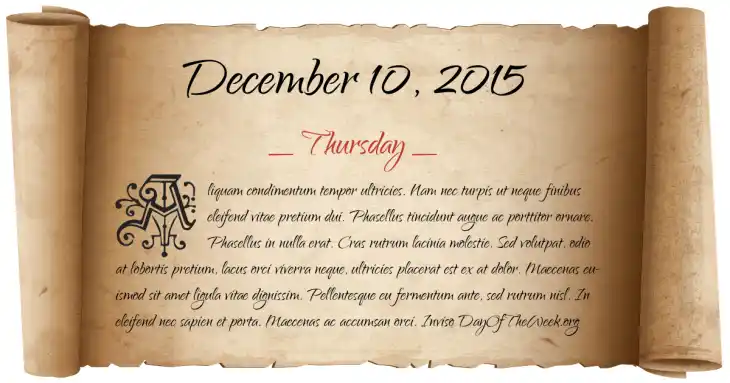 December 10, 2015
_ Thursday _
Aliquam condimentum tempor ultricies. Nam nec turpis ut neque finibus
eleifend vitae pretium dui. Phasellus tincidunt augue ac porttitor ornare.
Phasellus in nulla erat. Cras rutrum lacinia molestie. Sed volutpat, odio
at lobortis pretium, lacus orci viverra neque, ultricies placerat est ex at dolor. Maecenas eu-
ismod sit amet ligula vitae dignissim. Pellentesque eu fermentum ante, sed rutrum nisl. In
eleifend nec sapien et porta. Maecenas ac accumsan orci. Invisa DayOfTheWeek.org